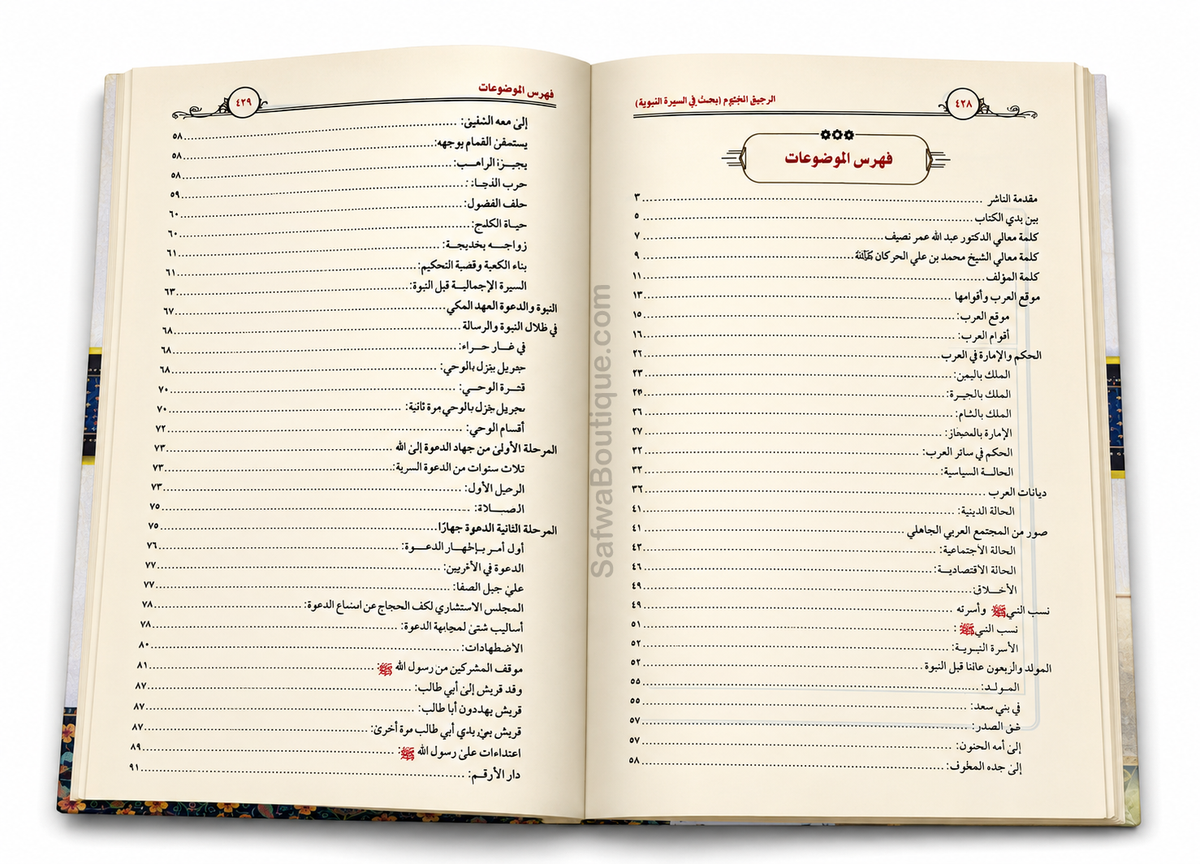 ٤٢٨
الرحيق المختوم (بحث في السيرة النبوية)
فهرس الموضوعات
مقدمة الناشر ٣
بين يدي الكتاب ٥
كلمة معالي الدكتور عبد الله عمر نصيف ٧
كلمة معالي الشيخ محمد بن علي الحركان ٩
كلمة المؤلف ١١
موقع العرب وأقوامها ١٣
موقع العرب: ١٥
أقوام العرب: ١٦
الحكم والإمارة في العرب ٢٦
الملك باليمن: ٢٣
الملك بالحيرة:
الملك بالشام: ٢٦
الإمارة بالحجاز: ٢٧
الحكم في سائر العرب: ٣٢
الحالة السياسية: ٣٢
ديانات العرب ٣٢
الحالة الدينية: ٤١
صور من المجتمع العربي الجاهلي ٤١
الحالة الاجتماعية: ٤٢
الحالة الاقتصاديـة: ٤٦
الأخـلاق: ٤٩
نسب النبي ﷺ وأسرته ٤٩
نسب النبي ﷺ: ٥١
الأسرة النبويـة: ٥٢
المولد وأربعون عامًا قبل النبوة ٥٢
المـولـد: ٥٥
في بني سعد: ٥٥
شق الصدر: ٥٧
إلى أمه الحنون: ٥٧
إلى جده العطوف: ٥٨
SafwaBoutique.com
فهرس الموضوعات
٤٢٩
إلى معه الشفيق: ٥٨
يستسقى الغمام بوجهه: ٥٨
بحيـرا الراهـب: ٥٨
حرب الفجار: ٥٩
حلف الفضول: ٦٠
حيـاة الكدح: ٦٠
زواجـه بخديجـة: ٦١
بناء الكعبة وقضية التحكيم: ٦١
السيرة الإجماليـة قبل النبوة: ٦٣
النبوة والدعوة العهد المكي ٦٧
في ظلال النبوة والرسالة ٦٨
في غـار حـراء: ٦٨
جبريل ينزل بالوحي: ٦٨
فتـرة الوحـي: ٧٠
جبريل ينزل بالوحي مرة ثانية: ٧٠
أقسام الوحي: ٧٢
المرحلة الأولى من جهاد الدعوة إلى الله ٧٣
ثلاث سنوات من الدعوة السرية: ٧٣
الرعيل الأول: ٧٣
الصـلاة: ٧٥
المرحلة الثانية الدعوة جهارًا ٧٥
أول أمـر بـإظهـار الدعـوة: ٧٦
الدعوة في الأقربين: ٧٧
على جبل الصفا: ٧٧
المجلس الاستشاري لكف الحجاج عن استماع الدعوة: ٧٨
أساليب شتى لمجابهة الدعوة: ٧٨
الاضطهادات: ٨٠
موقف المشركين من رسول الله ﷺ: ٨١
وفد قريش إلى أبي طالب: ٨٧
قريش يهددون أبا طالب: ٨٧
قريش بين يدي أبي طالب مرة أخرى: ٨٧
اعتداءات على رسول الله ﷺ: ٨٩
دار الأرقـم: ٩١